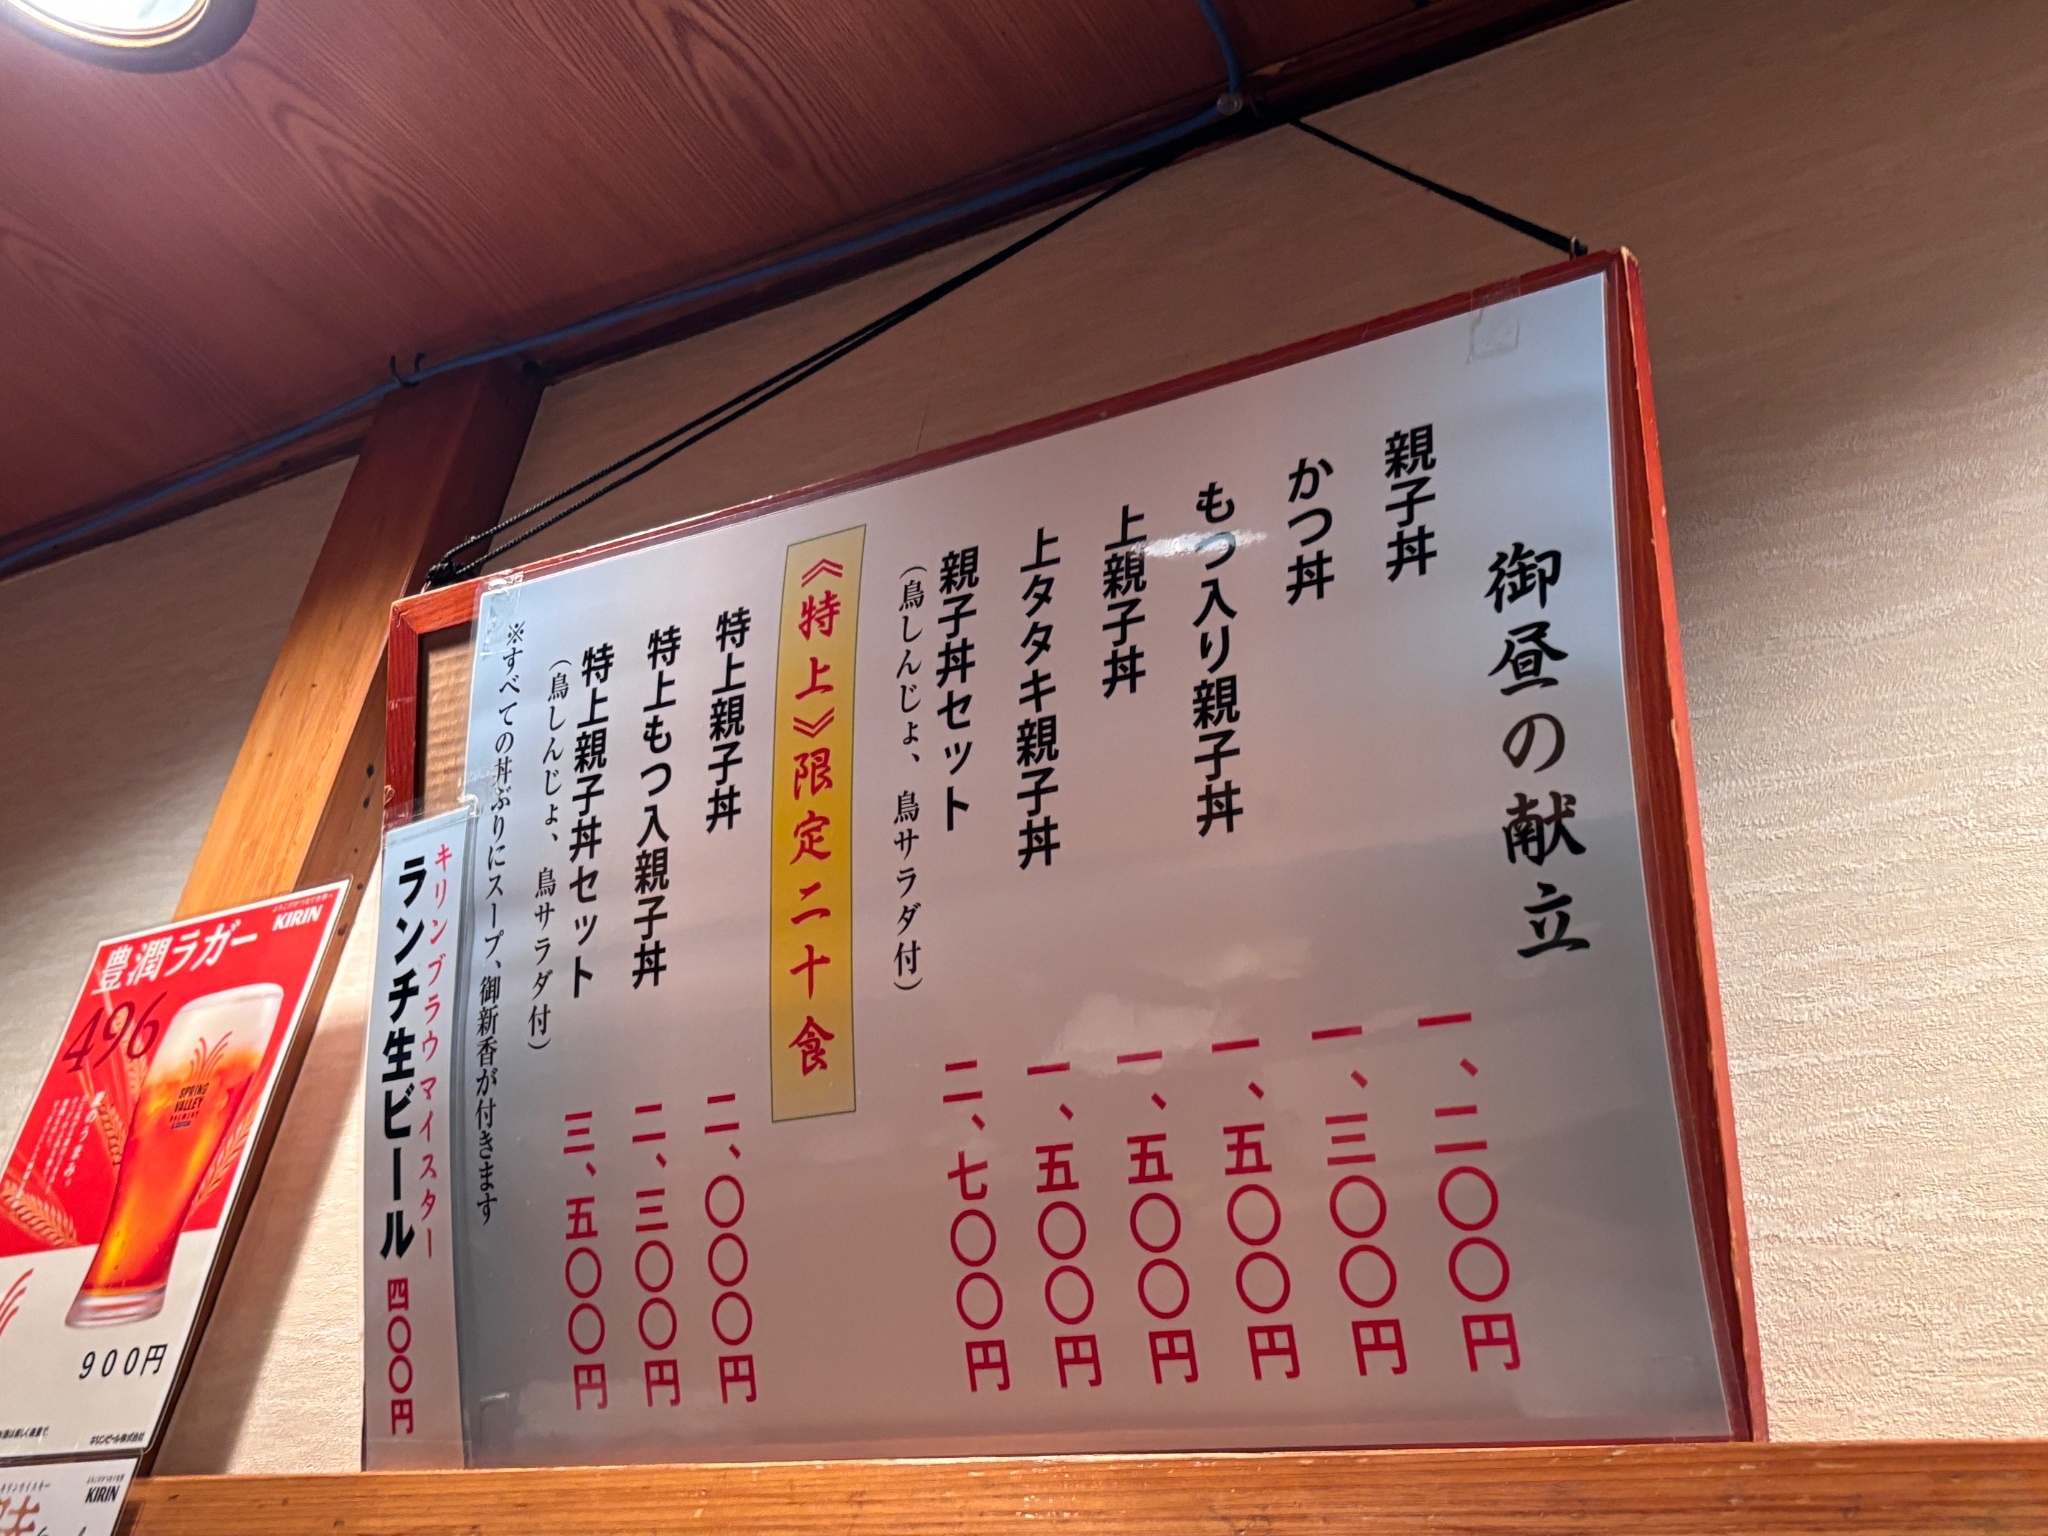 御昼の献立
親子丼 一、二〇〇円
かつ丼 一、三〇〇円
もつ入り親子丼 一、五〇〇円
上親子丼 一、五〇〇円
上タタキ親子丼 一、五〇〇円
親子丼セット 二、七〇〇円
(鳥しんじょ、鳥サラダ付)
《特上》限定二十食
特上親子丼 二、〇〇〇円
特上もつ入親子丼 二、三〇〇円
特上親子丼セット 三、五〇〇円
(鳥しんじょ、鳥サラダ付)
※すべての丼ぶりにスープ、御新香が付きます
キリンブラウマイスター
ランチ生ビール 四〇〇円
よろこびがつなぐ世界へ
KIRIN
豊潤ラガー
496
SPRING
VALLEY
BREWERY
900円
キリンビール株式会社
よろこびがつなぐ世界へ
KIRIN